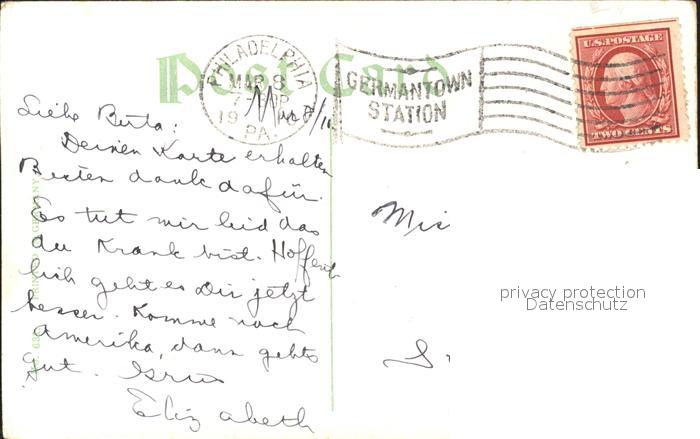 Post Card
PHILADELPHIA
MAR 8
7 PM
19
PA.
GERMANTOWN
STATION
U.S. POSTAGE
TWO CENTS
Mar 8/11
Liebe Berta:
Deinen Karte erhalten
Besten dank dafür.
Es tut mir leid das
du Krank bist. Hoffent
lich geht es Dir jetzt
besser. Komme nach
Amerika, dann gehts
gut. Grus
Elizabeth
Mis
privacy protection
Datenschutz